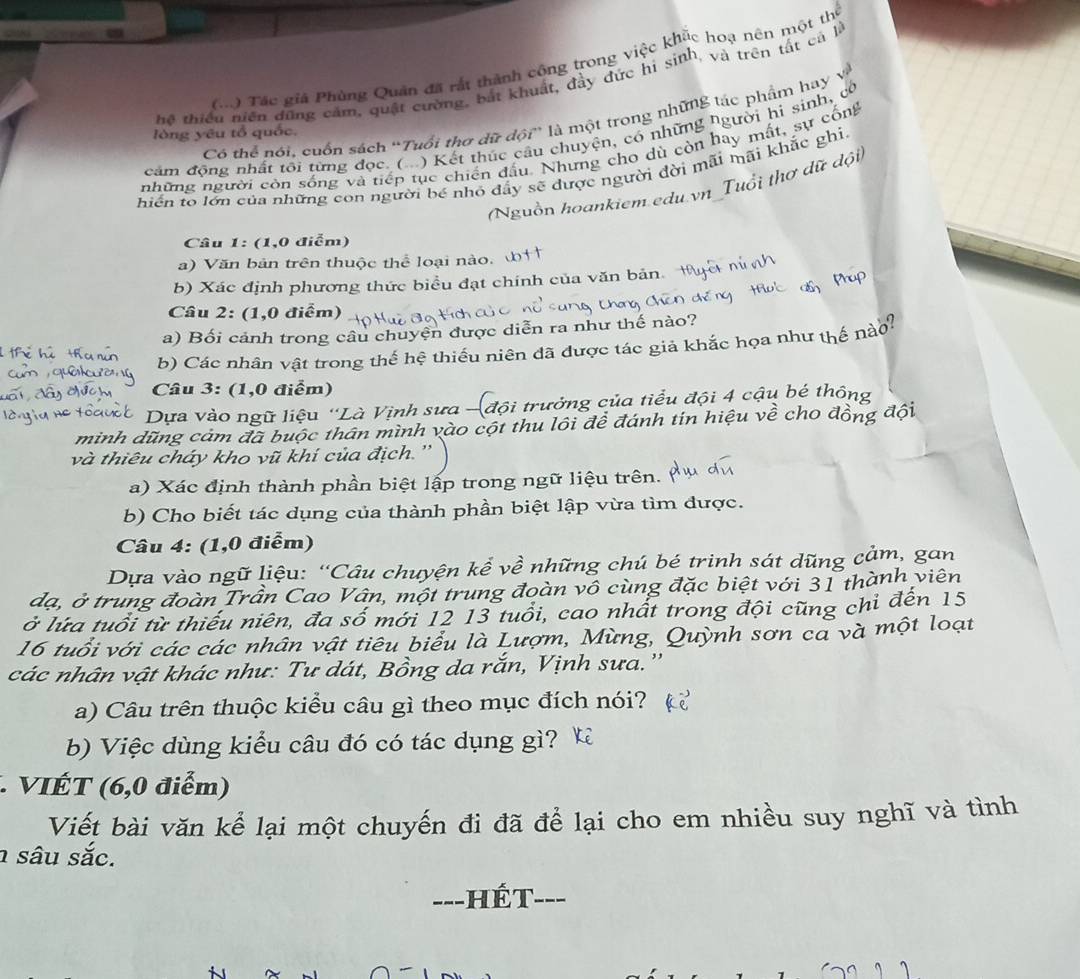 (...) Tác giả Phùng Quán đã rất thành công trong việc khắc hoạ nên một thế
hệ thiếu niên dũng cảm, quật cường, bất khuất, đầy đức hi sinh, và trên tất cả là
lòng yêu tổ quốc.
Có thể nói, cuốn sách “Tuổi thơ dữ dội” là một trong những tác phẩm hay và
cảm động nhất tôi từng đọc. (...) Kết thúc câu chuyện, có những người hi sinh, có
những người còn sống và tiếp tục chiến đấu. Nhưng cho dù còn hay mất, sự cống
hiến to lớn của những con người bé nhỏ đấy sẽ được người đời mãi mãi khắc ghi.
(Nguồn hoankiem.edu.vn_Tuổi thơ dữ dội)
Câu 1: (1,0 điểm)
a) Văn bản trên thuộc thể loại nào. vbtt
b) Xác định phương thức biểu đạt chính của văn bản. thuyết minh
Câu 2: (1,0 điểm)
chống thực dân Pháp
a) Bối cảnh trong câu chuyện được diễn ra như thế nào?
b) Các nhân vật trong thế hệ thiếu niên đã được tác giả khắc họa như thế nào?
Câu 3: (1,0 điểm)
Dựa vào ngữ liệu “Là Vịnh sưa – (đội trưởng của tiểu đội 4 cậu bé thông
minh dũng cảm đã buộc thân mình vào cột thu lôi để đánh tín hiệu về cho đồng đội
và thiêu cháy kho vũ khí của địch.” )
a) Xác định thành phần biệt lập trong ngữ liệu trên. phụ chú
b) Cho biết tác dụng của thành phần biệt lập vừa tìm được.
Câu 4: (1,0 điểm)
Dựa vào ngữ liệu: “Câu chuyện kể về những chú bé trinh sát dũng cảm, gan
dạ, ở trung đoàn Trần Cao Vân, một trung đoàn vô cùng đặc biệt với 31 thành viên
ở lứa tuổi từ thiếu niên, đa số mới 12 13 tuổi, cao nhất trong đội cũng chỉ đến 15
16 tuổi với các các nhân vật tiêu biểu là Lượm, Mừng, Quỳnh sơn ca và một loạt
các nhân vật khác như: Tư dát, Bồng da rắn, Vịnh sưa.”
a) Câu trên thuộc kiểu câu gì theo mục đích nói? kể
b) Việc dùng kiểu câu đó có tác dụng gì? kể
. VIẾT (6,0 điểm)
Viết bài văn kể lại một chuyến đi đã để lại cho em nhiều suy nghĩ và tình
sâu sắc.
---HẾT---